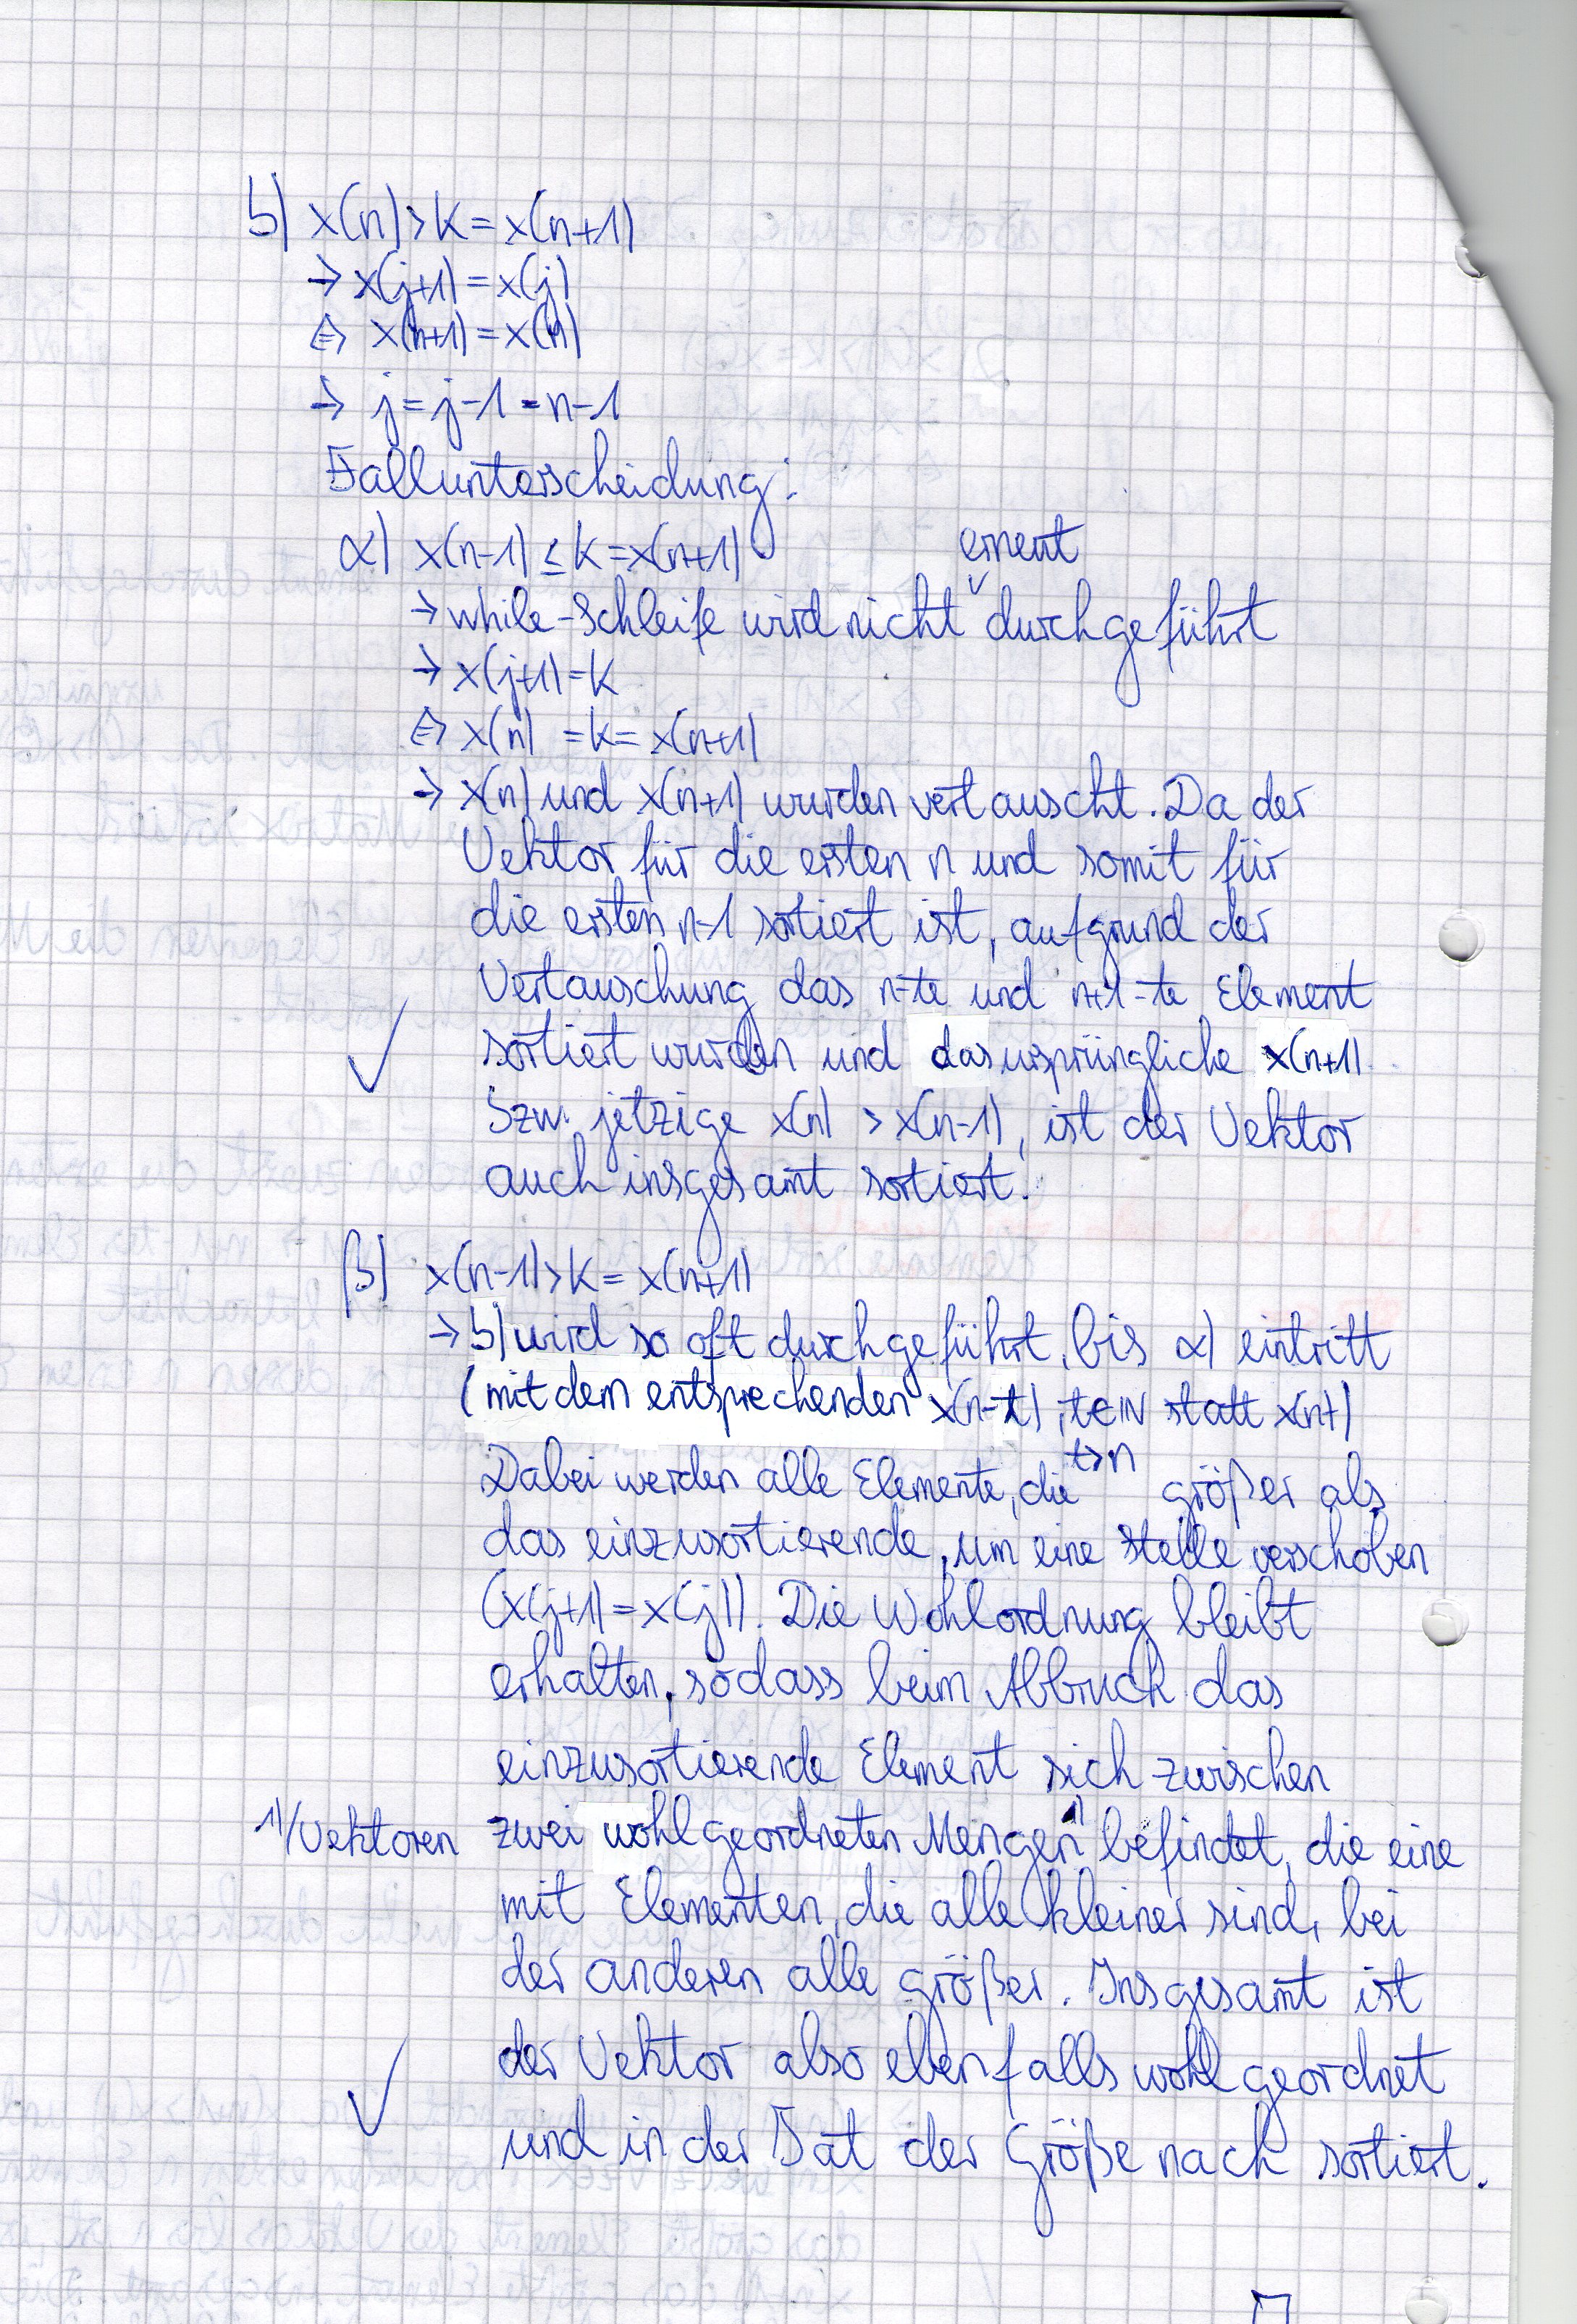 b) x(n) > k = x(n+1)
→ x(j+1) = x(j)
⇔ x(n+1) = x(n)
→ j = j-1 = n-1
Fallunterscheidung:
α) x(n-1) ≤ k = x(n+1)
erneut
→ while-Schleife wird nicht ˅ durchgeführt
→ x(j+1) = k
⇔ x(n) = k = x(n+1)
→ x(n) und x(n+1) wurden vertauscht. Da der
Vektor für die ersten n und somit für
die ersten n-1 sortiert ist, aufgrund der
Vertauschung das n-te und n+1-te Element
✓ sortiert wurden und das ursprüngliche x(n+1)
bzw. jetzige x(n) > x(n-1), ist der Vektor
auch insgesamt sortiert.
β) x(n-1) > k = x(n+1)
→ b) wird so oft durchgeführt, bis α) eintritt
(mit dem entsprechenden x(n-t), t∈ℕ statt x(n+)
t>n
Dabei werden alle Elemente, die größer als
das einzusortierende, um eine Stelle verschoben
(x(j+1) = x(j)). Die Wohlordnung bleibt
erhalten, sodass beim Abbruch das
einzusortierende Element sich zwischen
1) Vektoren zwei wohlgeordneten Mengen 1) befindet, die eine
mit Elementen, die alle kleiner sind, bei
der anderen alle größer. Insgesamt ist
der Vektor also ebenfalls wohlgeordnet
✓ und in der Tat der Größe nach sortiert.